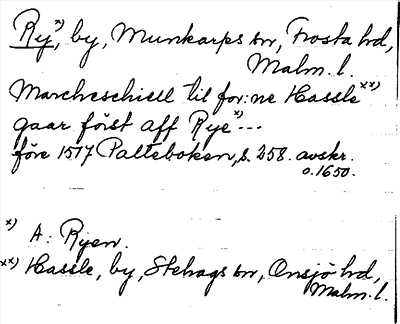 Ry x), by, Munkarps sn, Frosta hd,
Malm. l.
Marcheschiell til for:ne Hassle xx)
gaar först aff Rye x)...
före 1517 Palteboken, s. 258. avskr.
o. 1650.
x) A: Ryen.
xx) Hassle, by, Stehags sn, Onsjö hd,
Malm. l.